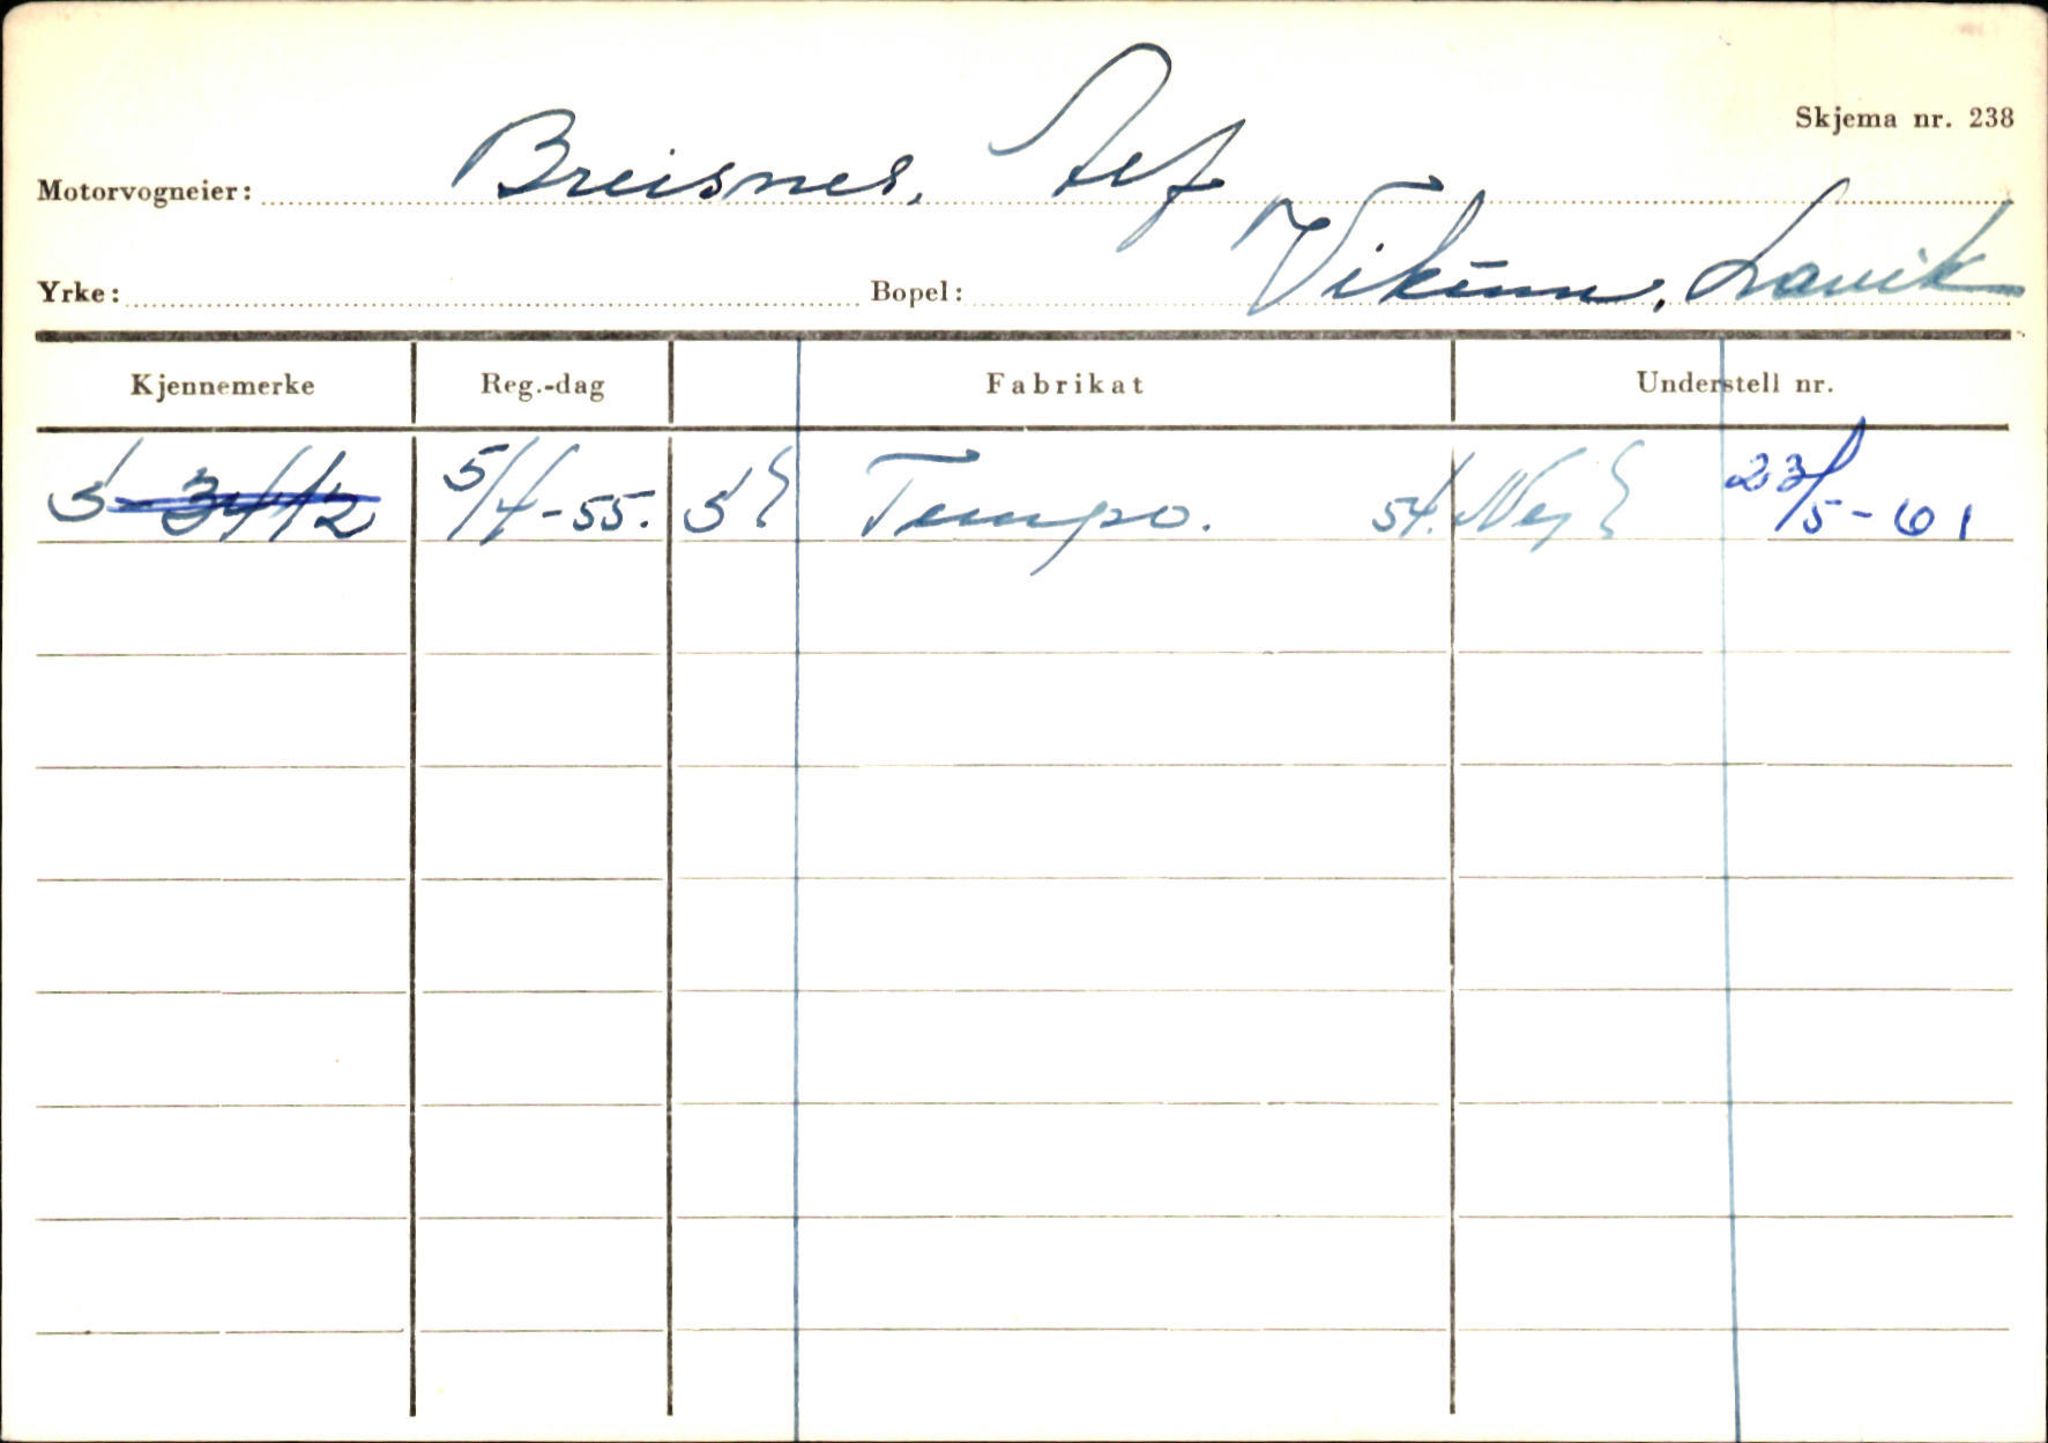 Skjema nr. 238
Motorvogneier: Breisnes, Alf
Yrke: Bopel: Vikum, Lavik
Kjennemerke Reg.-dag Fabrikat Understell nr.
S-3412 5/4-55. Tempo. 54. 23/5-61